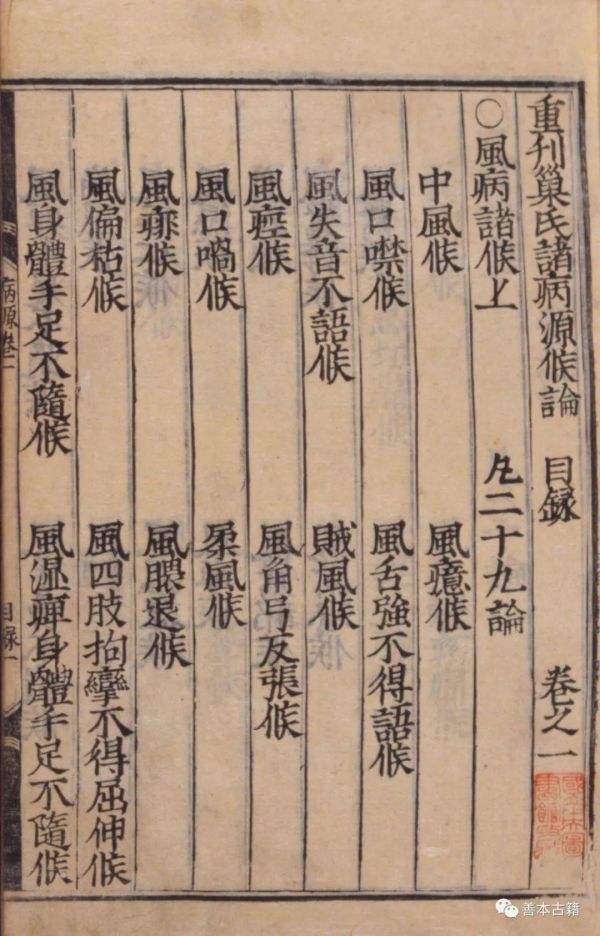 重刊巢氏諸病源候論 目録 卷之一
○風病諸候上 凡二十九論
中風候 風癔候
風口噤候 風舌強不得語候
風失音不語候 賊風候
風痙候 風角弓反張候
風口喎候 柔風候
風痱候 風腲退候
風偏枯候 風四肢拘攣不得屈伸候
風身體手足不隨候 風濕痺身體手足不隨候
病源卷一
目録一
善本古籍